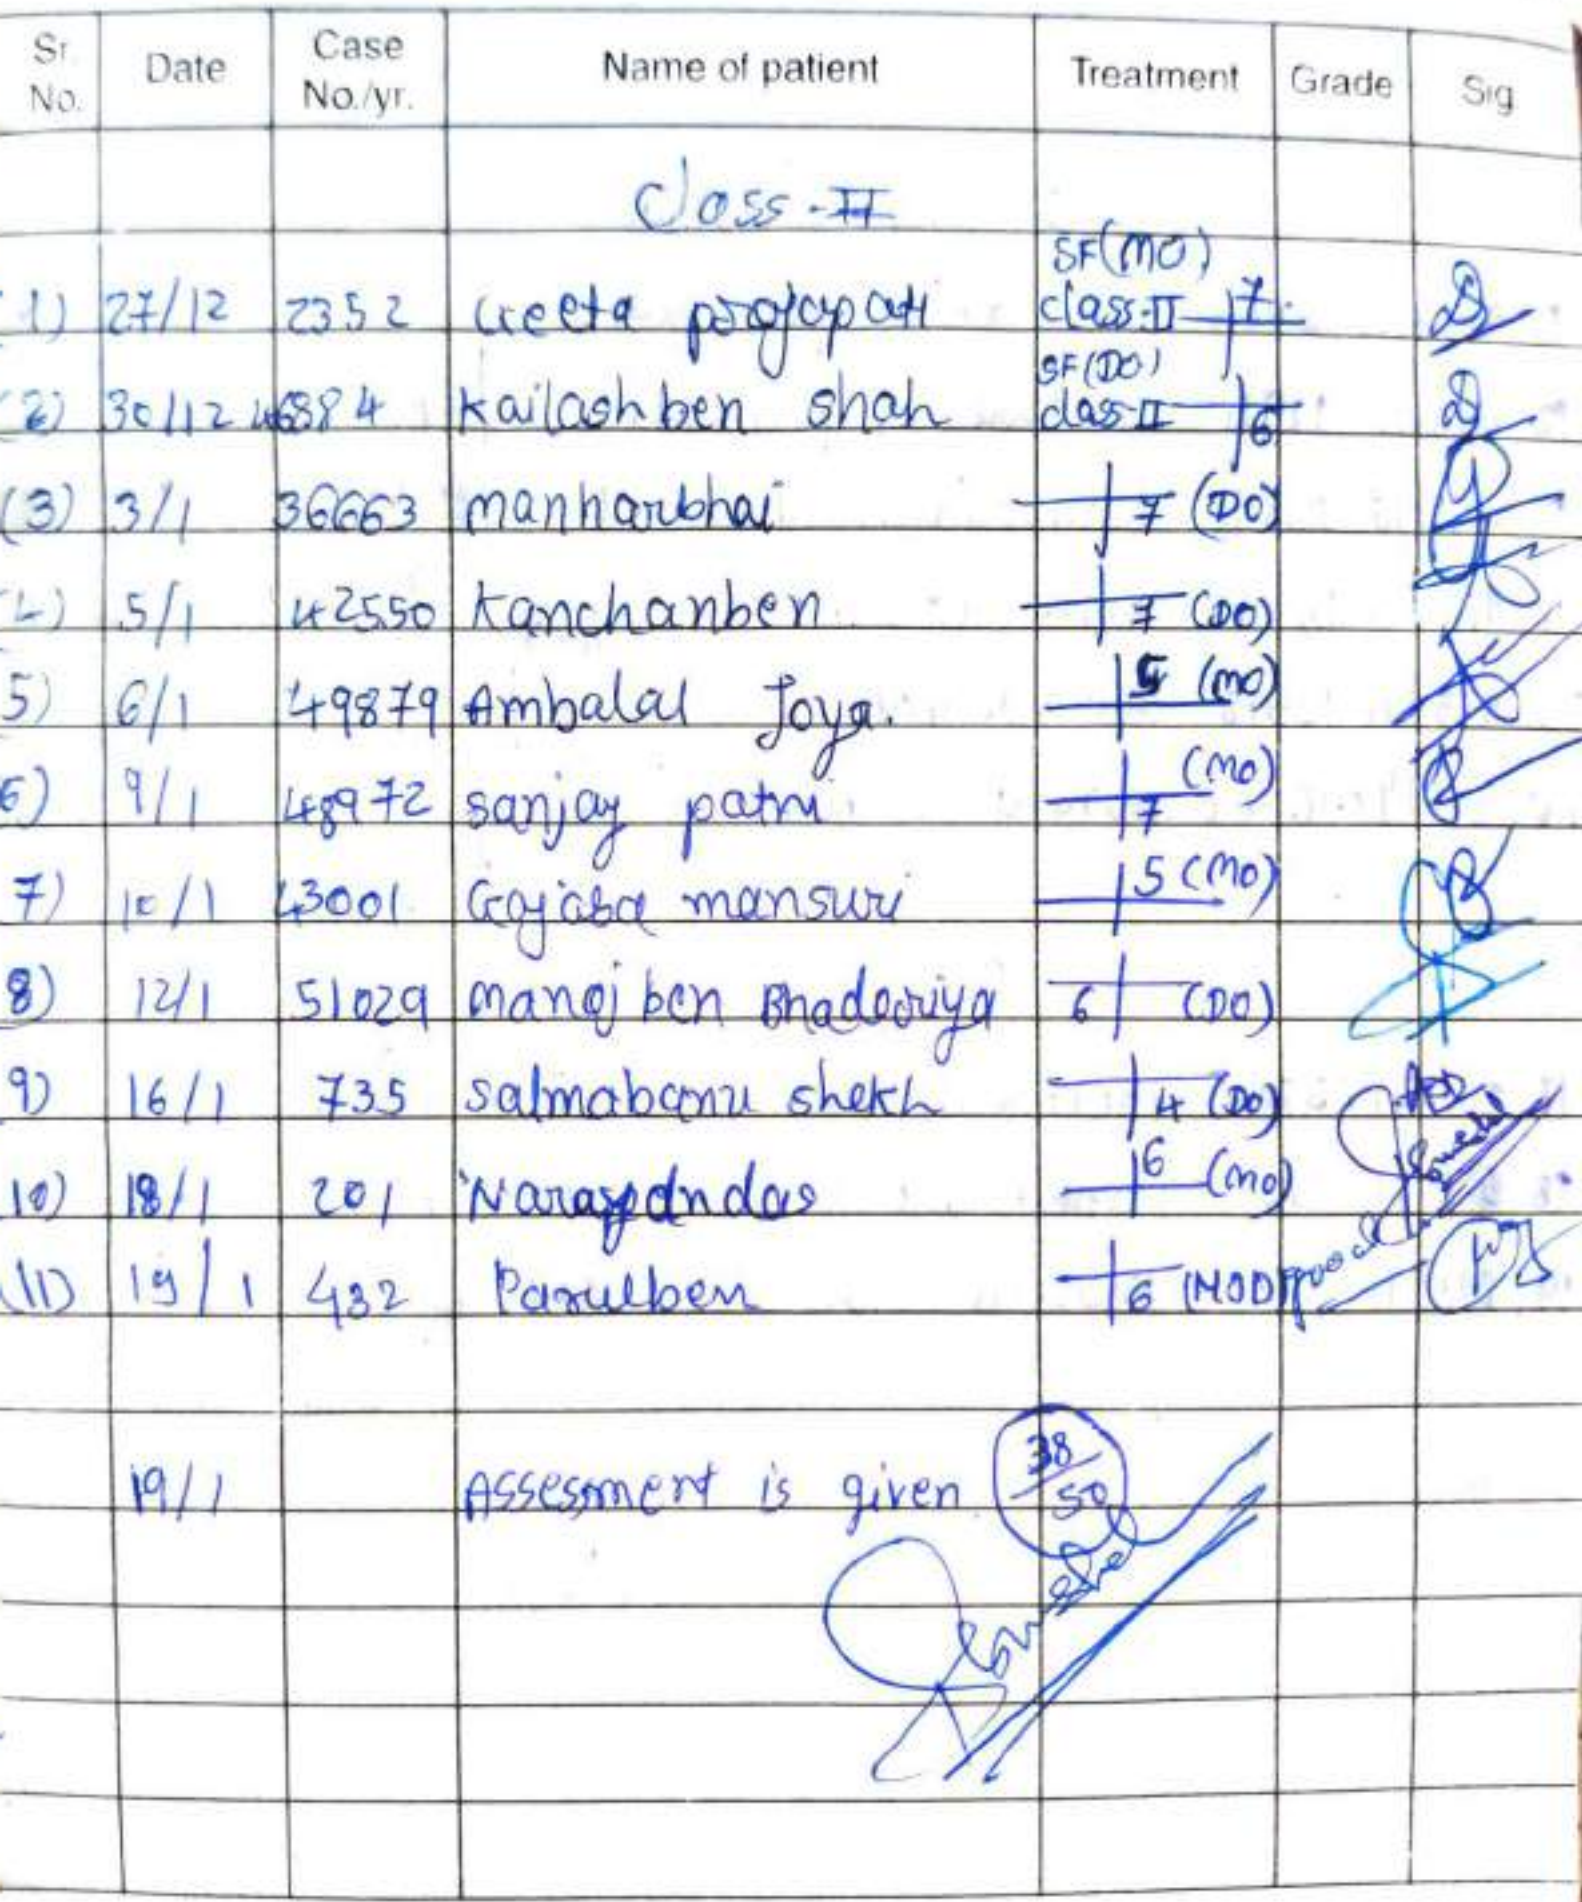 Sr. No. Date Case No./yr. Name of patient Treatment Grade Sig
Class-II
1) 27/12 2352 Geeta prajapati SF(MO) class-II 7
(2) 30/12 46884 Kailashben shah SF(DO) class-II 6
(3) 3/1 36663 manharbhai 7 (DO)
5/1 42550 Kanchanben 7 (DO)
5) 6/1 49879 Ambalal Joya. 5 (MO)
6) 9/1 48972 sanjay patni 7 (MO)
7) 10/1 43001 mansuri 5 (MO)
8) 12/1 51029 manojben Bhadooriya 6 (DO)
9) 16/1 735 salmabanu shekh 4 (DO)
10) 18/1 201 6 (MO)
11) 19/1 432 Parulben 6 (MOD) good
19/1 Assesment is given 38/50